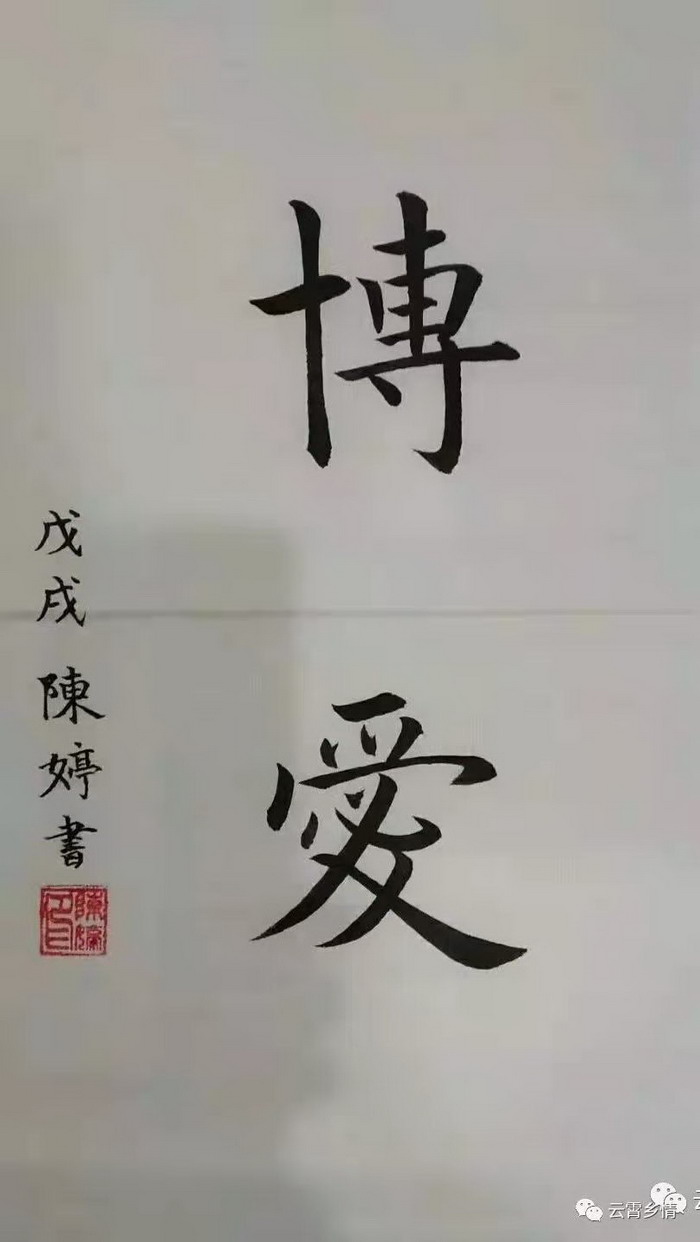 博愛
戊戌 陳婷書
陳婷印
云霄乡情
云